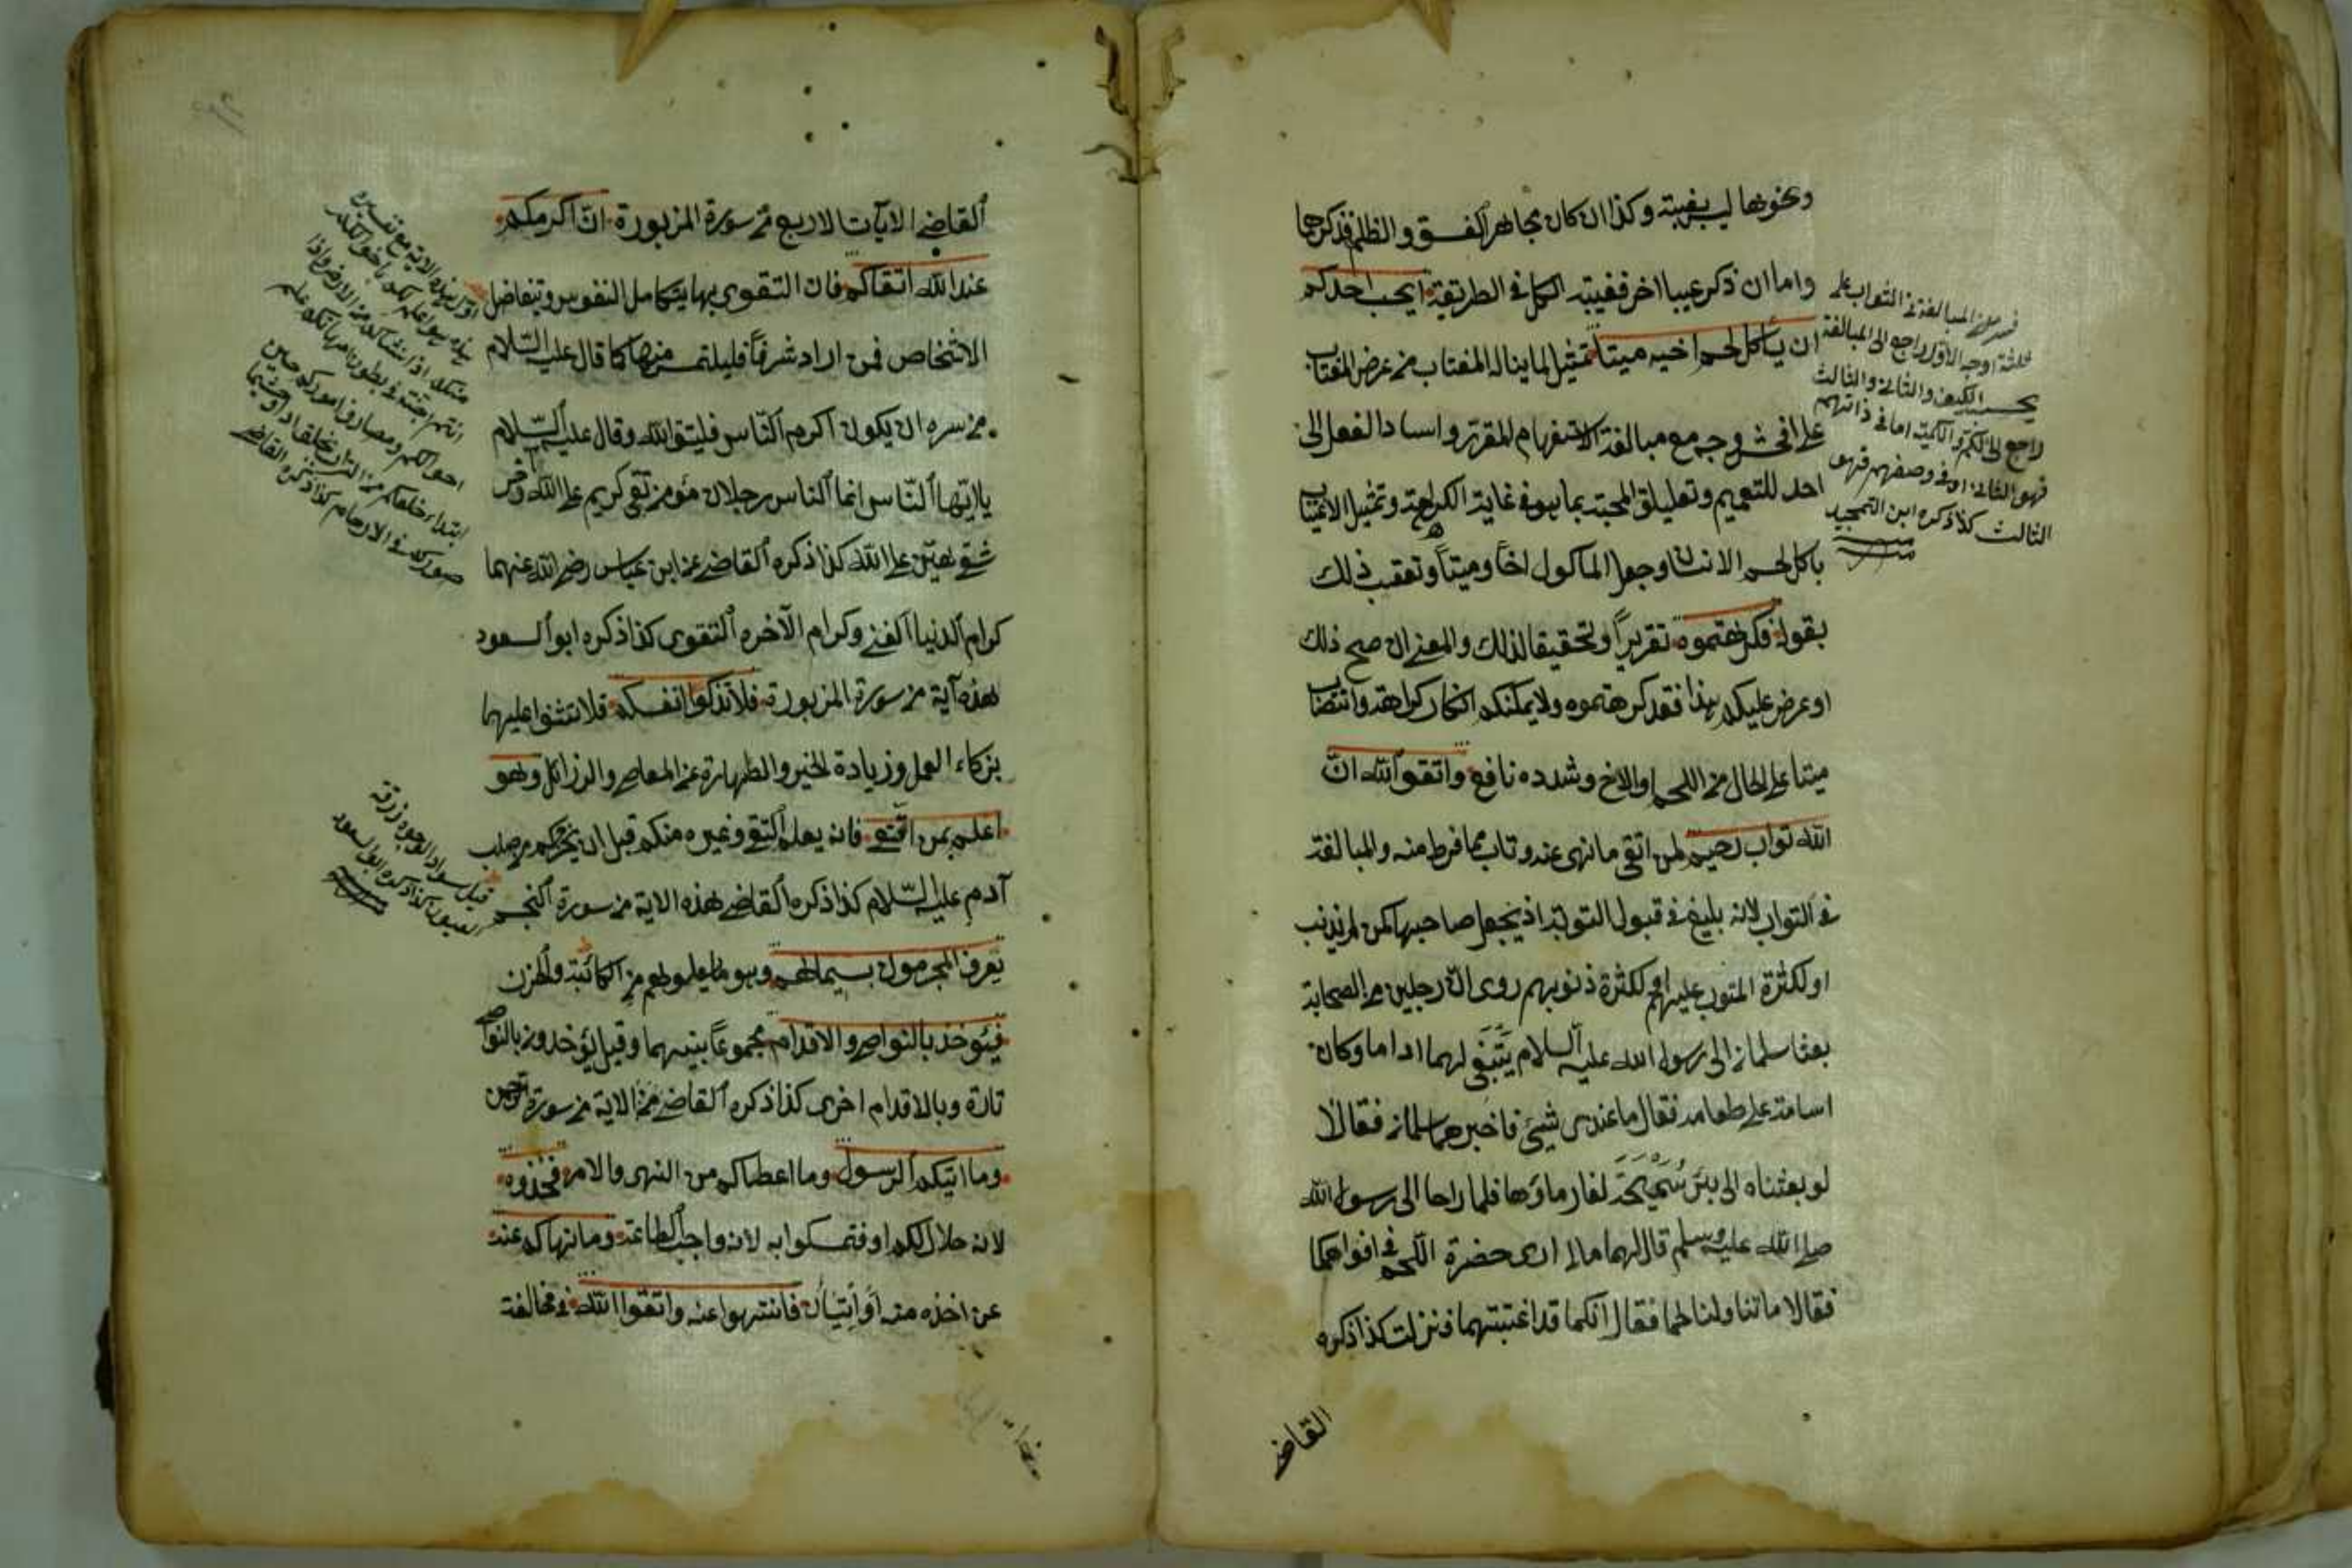 ونحوها ليس بغيبة وكذا ان كان مجاهر الفسق والظلم فذكرهما
واما ان ذكر عيبا اخر فغيبة الكل في الطريقة ايحب احدكم
ان ياكل لحم اخيه ميتا تمثيل لما يناله المغتاب من عرض المغتاب
على افحش وجه مع مبالغة الاستفهام المقرر واسناد الفعل الى
احد للتعميم وتعليق المحبة بما هو في غاية الكراهة وتمثيل الاغتياب
باكل لحم الانسان وجعل المأكول اخاً وميتاً وتعقب ذلك
بقوله فكرهتموه تقريراً وتحقيقا لذلك والمعنى ان صح ذلك
او عرض عليكم هذا فقد كرهتموه ولا يمكنكم انكار كراهته وانتصاب
ميتا على الحال من اللحم او الاخ وشدده نافع واتقوا الله ان
الله تواب رحيم لمن اتقى ما نهى عنه وتاب مما فرط منه والمبالغة
في التواب لانه بليغ في قبول التوبة اذ يجعل صاحبها كمن لم يذنب
او لكثرة المتوب عليهم او لكثرة ذنوبهم روى ان رجلين من الصحابة
بعثا سلمان الى رسول الله عليه السلام يتبغى لهما اداما وكان
اسامة على طعامه فقال ما عندى شيئ فاخبرهما سلمان فقالا
لو بعثناه الى بئر سميحة لغار ماؤها فلما راحا الى رسول الله
صلى الله عليه وسلم قال لهما مالى ارى حضرة اللحم في افواهكما
فقالا ما تناولنا لحما فقال انكما قد اغتبتهما فنزلت كذا ذكره
القاضى
ثلثة اوجه الاول راجع الى المبالغة
بحسب الكيف والثانى والثالث
راجع الى الكم والكمية اما في ذاتهم
فهو الثانى او في وصفهم فهو
الثالث كذا ذكره ابن التمجيد
القاضى الايات الاربع من سورة المزبورة ان اكرمكم
عند الله اتقاكم فان التقوى بها يتكامل النفوس وتتفاضل
الاشخاص فمن اراد شرفاً فليلتمس منها كما قال عليه السلام
من سره ان يكون اكرم الناس فليتق الله وقال عليه السلام
يا ايها الناس انما الناس رجلان مؤمن تقى كريم على الله وفاجر
شقى هين على الله كذا ذكره القاضى عن ابن عباس رضى الله عنهما
كرام الدنيا الغنى وكرام الآخره التقوى كذا ذكره ابو السعود
هذه آية من سورة المزبورة فلا تزكوا انفسكم فلا تثنوا عليها
بزكاء العمل وزيادة الخير والطهارة عن المعاصى والرزائل وهو
اعلم بمن اتقى فانه يعلم التقى وغيره منكم قبل ان يخرجكم من صلب
آدم عليه السلام كذا ذكره القاضى هذه الاية من سورة النجم
يعرف المجرمون بسيماهم وهو ما يعلوهم من الكائبة والحزن
فيئوخذ بالنواصى والاقدام مجموعاً بينهما وقيل يؤخذون بالنواصى
تارة وبالاقدام اخرى كذا ذكره القاضى هذا الاية من سورة الرحمن
وما اتيكم الرسول وما اعطاكم من النهى والامر فخذوه
لانه حلال لكم او فتمسكوا به لانه واجب الطاعة وما نهاكم عنه
عن اخذه منه او اتيان فانتهوا عنه واتقوا الله في مخالفة
ابتداء خلقكم من التراب
صوركم في الارحام كذا ذكره القاضى
قيل سواد الوجوه وزرقة
العيون كذا ذكره ابو السعود